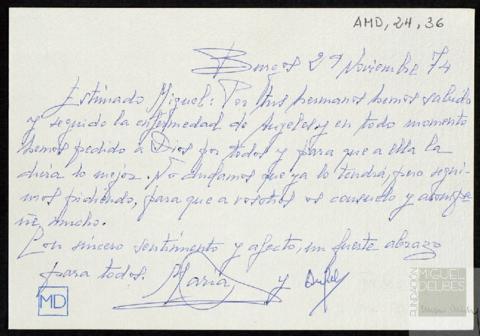 AMD, 24, 36
Burgos 29 Noviembre 74
Estimado Miguel: Por tus hermanos hemos sabido
y seguido la enfermedad de Angeles, y en todo momento
hemos pedido a Dios por todos y para que a ella la
diera lo mejor. No dudamos que ya lo tendrá, pero segui-
mos pidiendo, para que a vosotros os consuele y acompa-
ñe mucho.
Con sincero sentimiento y afecto, un fuerte abrazo
para todos. María y
MD
FUNDACIÓN
MIGUEL
DELIBES